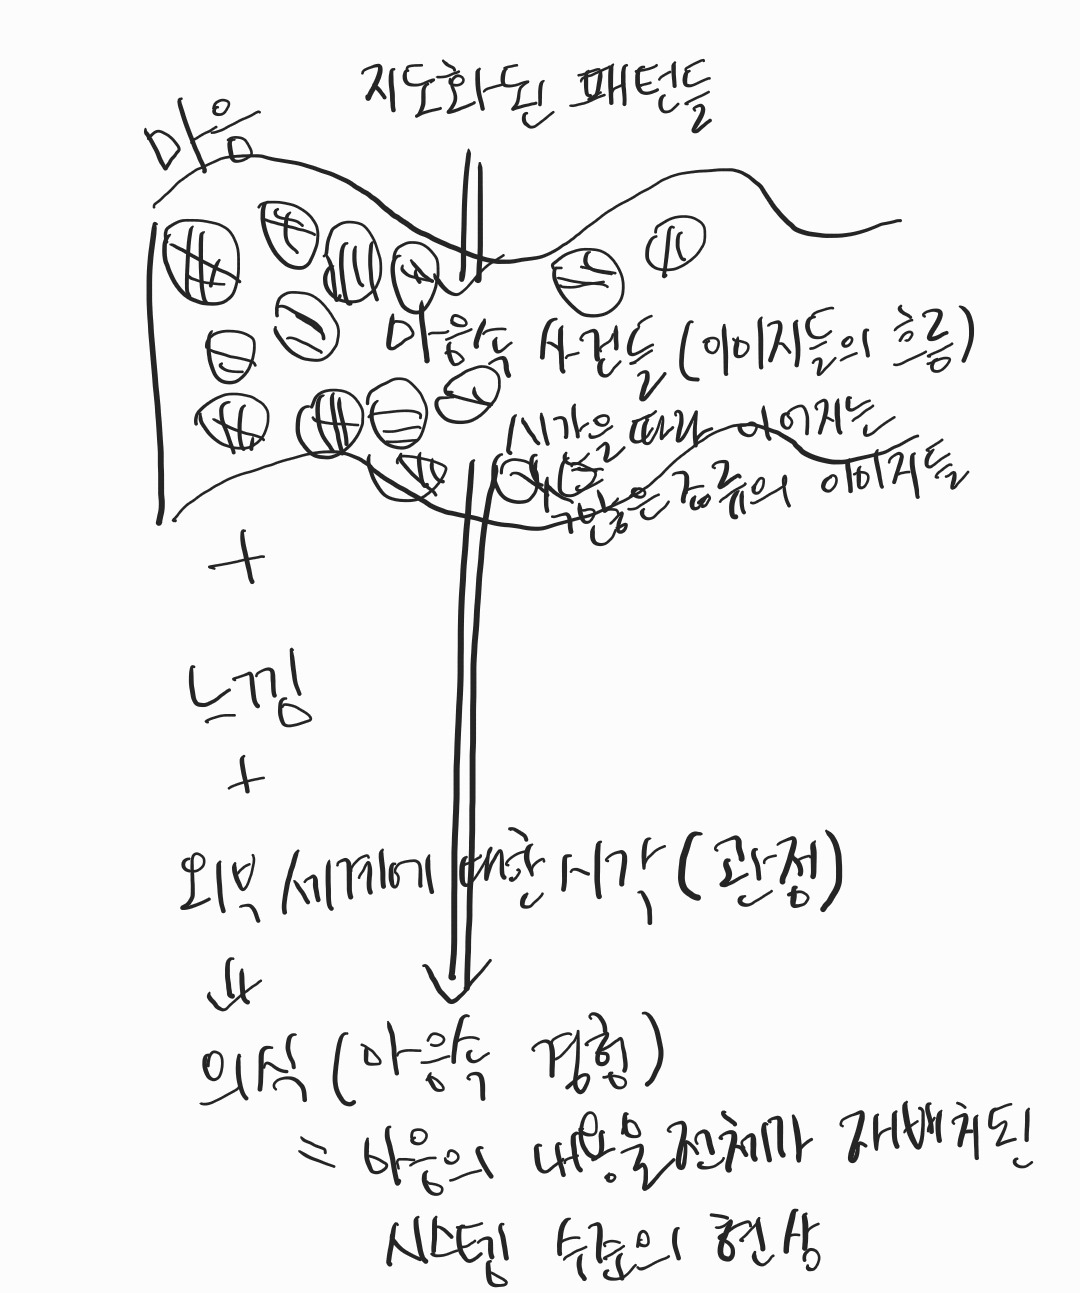 지도화된 패턴들
마음
마음속 사건들 (이미지들의 흐름)
시간을 따라 이어지는
수많은 종류의 이미지들
+
느낌
+
외부 세계에 대한 시각 (관점)
의식 (마음속 경험)
= 마음의 내용물 전체가 재배치된
시스템 수준의 현상